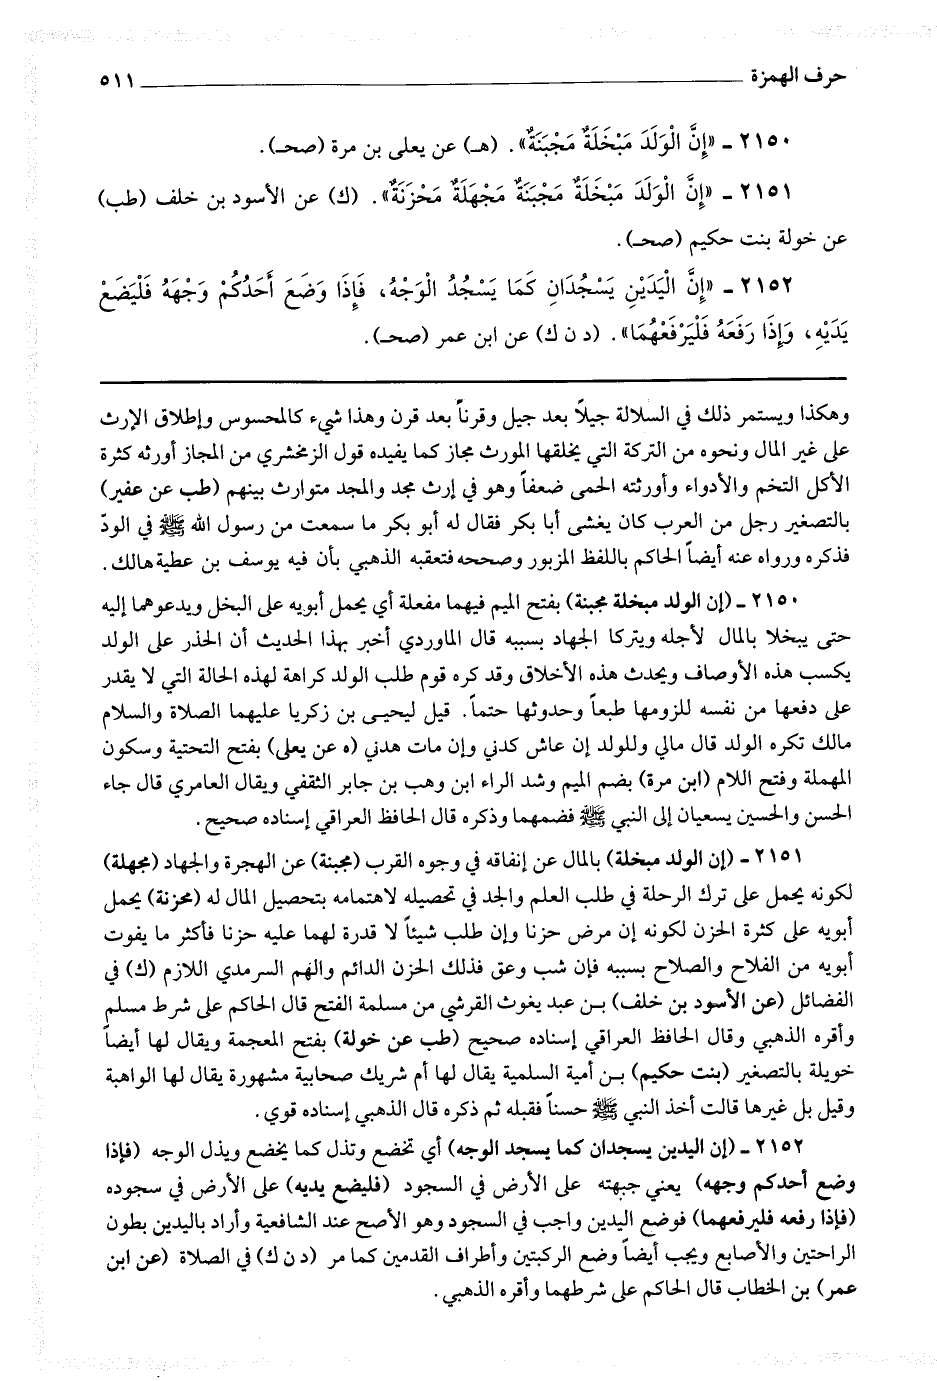 حرف الهمزة ٥١١
٢١٥٠ ـ «إِنَّ الْوَلَدَ مَبْخَلَةٌ مَجْبَنَةٌ». (هـ) عن يعلى بن مرة (صحـ).
٢١٥١ ـ «إِنَّ الْوَلَدَ مَبْخَلَةٌ مَجْبَنَةٌ مَجْهَلَةٌ مَحْزَنَةٌ». (ك) عن الأسود بن خلف (طب)
عن خولة بنت حكيم (صحـ).
٢١٥٢ ـ «إِنَّ الْيَدَيْنِ يَسْجُدَانِ كَمَا يَسْجُدُ الْوَجْهُ، فَإِذَا وَضَعَ أَحَدُكُمْ وَجْهَهُ فَلْيَضَعْ
يَدَيْهِ، وَإِذَا رَفَعَهُ فَلْيَرْفَعْهُمَا». (د ن ك) عن ابن عمر (صحـ).
وهكذا ويستمر ذلك في السلالة جيلاً بعد جيل وقرناً بعد قرن وهذا شيء كالمحسوس وإطلاق الإرث
على غير المال ونحوه من التركة التي يخلقها المورث مجاز كما يفيده قول الزمخشري من المجاز أورثه كثرة
الأكل التخم والأدواء وأورثته الحمى ضعفاً وهو في إرث مجد والمجد متوارث بينهم (طب عن عفير)
بالتصغير رجل من العرب كان يغشى أبا بكر فقال له أبو بكر ما سمعت من رسول الله ﷺ في الودّ
فذكره ورواه عنه أيضاً الحاكم باللفظ المزبور وصححه فتعقبه الذهبي بأن فيه يوسف بن عطية هالك.
٢١٥٠ ـ (إن الولد مبخلة مجبنة) بفتح الميم فيهما مفعلة أي يحمل أبويه على البخل ويدعوهما إليه
حتى يبخلا بالمال لأجله ويتركا الجهاد بسببه قال الماوردي أخبر بهذا الحديث أن الحذر على الولد
يكسب هذه الأوصاف ويحدث هذه الأخلاق وقد كره قوم طلب الولد كراهة لهذه الحالة التي لا يقدر
على دفعها من نفسه للزومها طبعاً وحدوثها حتماً. قيل ليحيى بن زكريا عليهما الصلاة والسلام
مالك تكره الولد قال مالي وللولد إن عاش كدني وإن مات هدني (ه عن يعلى) بفتح التحتية وسكون
المهملة وفتح اللام (ابن مرة) بضم الميم وشد الراء ابن وهب بن جابر الثقفي ويقال العامري قال جاء
الحسن والحسين يسعيان إلى النبي ﷺ فضمهما وذكره قال الحافظ العراقي إسناده صحيح.
٢١٥١ ـ (إن الولد مبخلة) بالمال عن إنفاقه في وجوه القرب (مجبنة) عن الهجرة والجهاد (مجهلة)
لكونه يحمل على ترك الرحلة في طلب العلم والجد في تحصيله لاهتمامه بتحصيل المال له (محزنة) يحمل
أبويه على كثرة الحزن لكونه إن مرض حزنا وإن طلب شيئاً لا قدرة لهما عليه حزنا فأكثر ما يفوت
أبويه من الفلاح والصلاح بسببه فإن شب وعق فذلك الحزن الدائم والهم السرمدي اللازم (ك) في
الفضائل (عن الأسود بن خلف) بـن عبد يغوث القرشي من مسلمة الفتح قال الحاكم على شرط مسلم
وأقره الذهبي وقال الحافظ العراقي إسناده صحيح (طب عن خولة) بفتح المعجمة ويقال لها أيضاً
خويلة بالتصغير (بنت حكيم) بـن أمية السلمية يقال لها أم شريك صحابية مشهورة يقال لها الواهبة
وقيل بل غيرها قالت أخذ النبي ﷺ حسناً فقبله ثم ذكره قال الذهبي إسناده قوي.
٢١٥٢ ـ (إن اليدين يسجدان كما يسجد الوجه) أي تخضع وتذل كما يخضع ويذل الوجه (فإذا
وضع أحدكم وجهه) يعني جبهته على الأرض في السجود (فليضع يديه) على الأرض في سجوده
(فإذا رفعه فليرفعهما) فوضع اليدين واجب في السجود وهو الأصح عند الشافعية وأراد باليدين بطون
الراحتين والأصابع ويجب أيضاً وضع الركبتين وأطراف القدمين كما مر (د ن ك) في الصلاة (عن ابن
عمر) بن الخطاب قال الحاكم على شرطهما وأقره الذهبي.